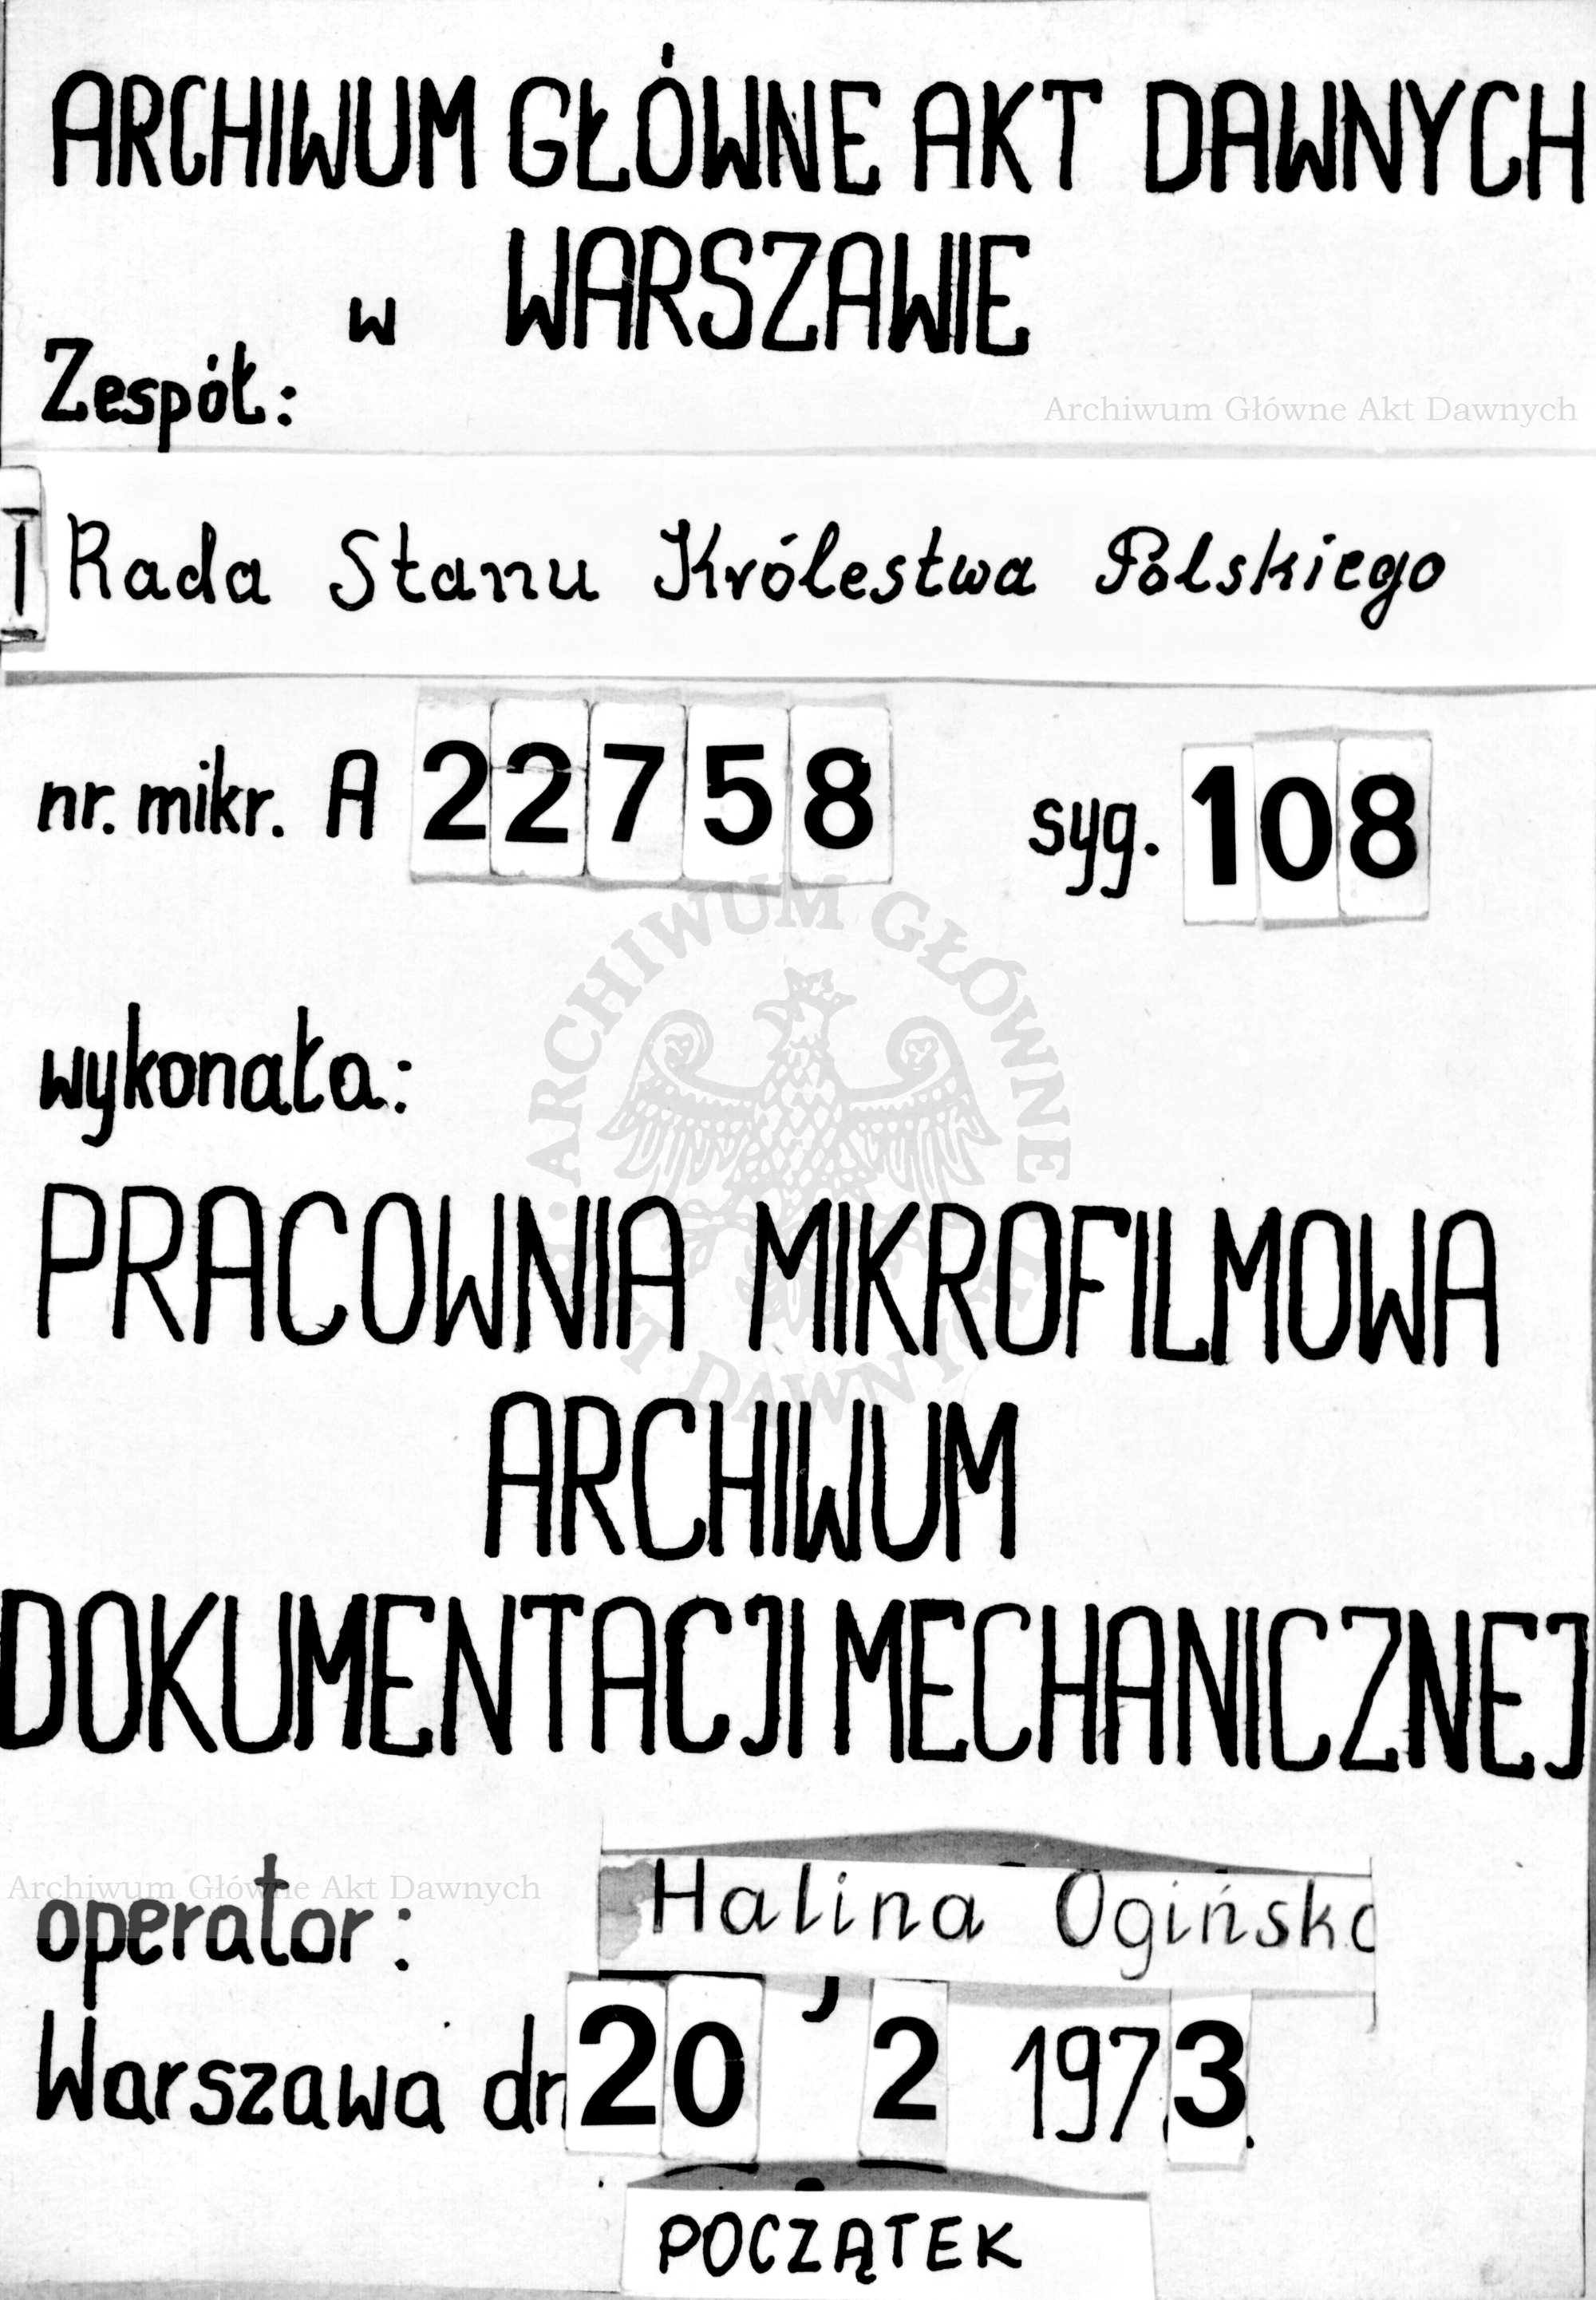 ARCHIWUM GŁÓWNE AKT DAWNYCH
w WARSZAWIE
Zespół:
Archiwum Główne Akt Dawnych
I Rada Stanu Królestwa Polskiego
nr. mikr. A 22758 syg. 108
ARCHIWUM GŁÓWNE AKT DAWNYCH
wykonała:
PRACOWNIA MIKROFILMOWA
ARCHIWUM
DOKUMENTACJI MECHANICZNEJ
Archiwum Główne Akt Dawnych
operator: Halina Ogińska
Warszawa dn 20 2 1973.
POCZĄTEK